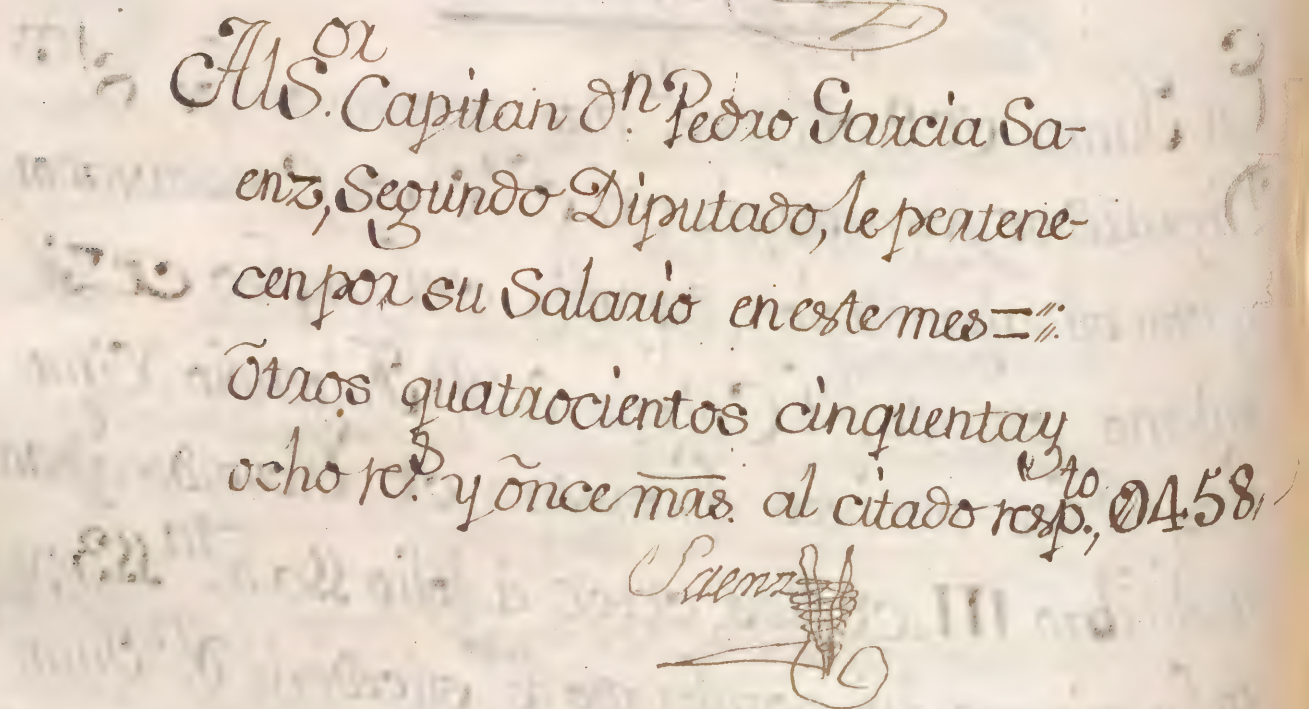 Al S.or Capitan dn. Pedro Garcia Sa-
enz, Segundo Diputado, le pertene-
cen por su Salario en este mes =
õtros quatrocientos cinquenta y
ocho rs. y õnce mrs. al citado respto., 0458
Saenz